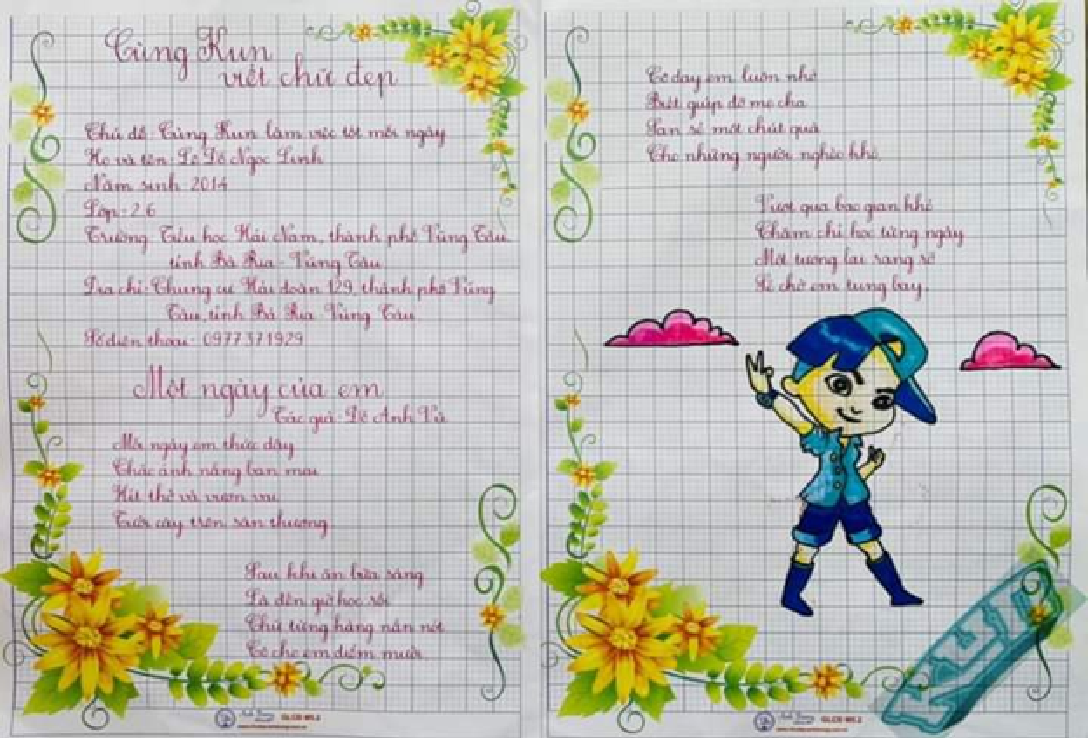 Cùng Kun
viết chữ đẹp
Chủ đề: Cùng Kun làm việc tốt mỗi ngày
Họ và tên: Lê Đỗ Ngọc Linh
Năm sinh: 2014
Lớp: 2.6
Trường: Tiểu học Hải Nam, thành phố Vũng Tàu
tỉnh Bà Rịa - Vũng Tàu
Địa chỉ: Chung cư Hải đoàn 129, thành phố Vũng
Tàu, tỉnh Bà Rịa - Vũng Tàu
Số điện thoại: 0977371929
Một ngày của em
Tác giả: Đỗ Anh Vũ
Mỗi ngày em thức dậy
Chắc ánh nắng ban mai
Hít thở và vươn vai
Tưới cây trên sân thượng
Sau khi ăn bữa sáng
Là đến giờ học rồi
Chữ từng hàng nắn nót
Cô cho em điểm mười
Cô dạy em luôn nhớ
Biết giúp đỡ mẹ cha
San sẻ một chút quà
Cho những người nghèo khó.
Vượt qua bao gian khó
Chăm chỉ học từng ngày
Một tương lai sáng sẽ
Sẽ chờ em tung bay.
Anh Dương
GLCD M5.2
Anh Dương
GLCD M5.2